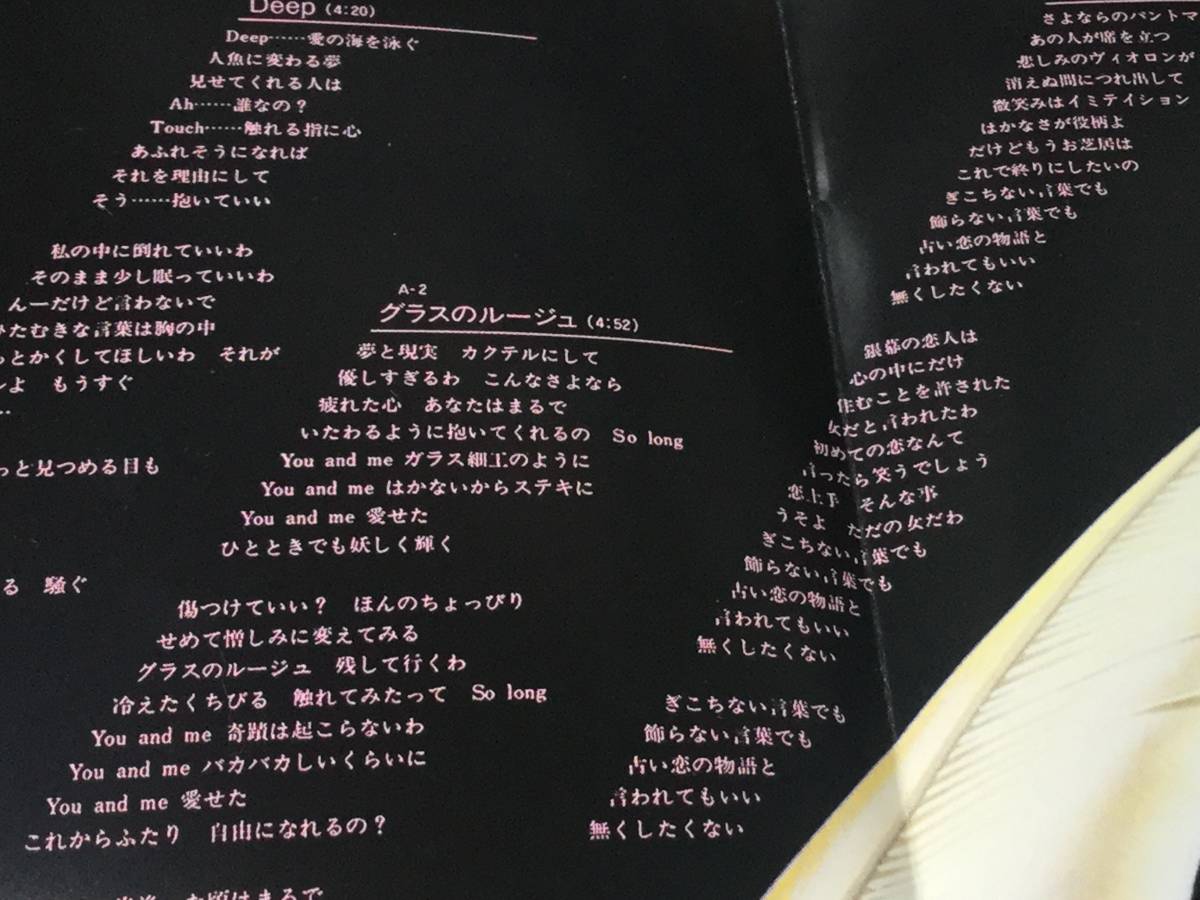 Deep (4:20)
Deep……愛の海を泳ぐ
人魚に変わる夢
見せてくれる人は
Ah……誰なの？
Touch……触れる指に心
あふれそうになれば
それを理由にして
そう……抱いていい
私の中に倒れていいわ
そのまま少し眠っていいわ
んーだけど言わないで
ひたむきな言葉は胸の中
っとかくしてほしいわ　それが
よ　もうすぐ
っと見つめる目も
る　騒ぐ
A-2
グラスのルージュ (4:52)
夢と現実　カクテルにして
優しすぎるわ　こんなさよなら
疲れた心　あなたはまるで
いたわるように抱いてくれるの　So long
You and me ガラス細工のように
You and me はかないからステキに
You and me 愛せた
ひとときでも妖しく輝く
傷つけていい？　ほんのちょっぴり
せめて憎しみに変えてみる
グラスのルージュ　残して行くわ
冷えたくちびる　触れてみたって　So long
You and me 奇蹟は起こらないわ
You and me バカバカしいくらいに
You and me 愛せた
これからふたり　自由になれるの？
頃はまるで
さよならのパントマ
あの人が席を立つ
悲しみのヴィオロンが
消えぬ間につれ出して
微笑みはイミテイション
はかなさが役柄よ
だけどもうお芝居は
これで終りにしたいの
ぎこちない言葉でも
飾らない言葉でも
古い恋の物語と
言われてもいい
無くしたくない
銀幕の恋人は
心の中にだけ
住むことを許された
女だと言われたわ
初めての恋なんて
言ったら笑うでしょう
恋上手　そんな事
うそよ　ただの女だわ
ぎこちない言葉でも
飾らない言葉でも
古い恋の物語と
言われてもいい
無くしたくない
ぎこちない言葉でも
飾らない言葉でも
古い恋の物語と
言われてもいい
無くしたくない